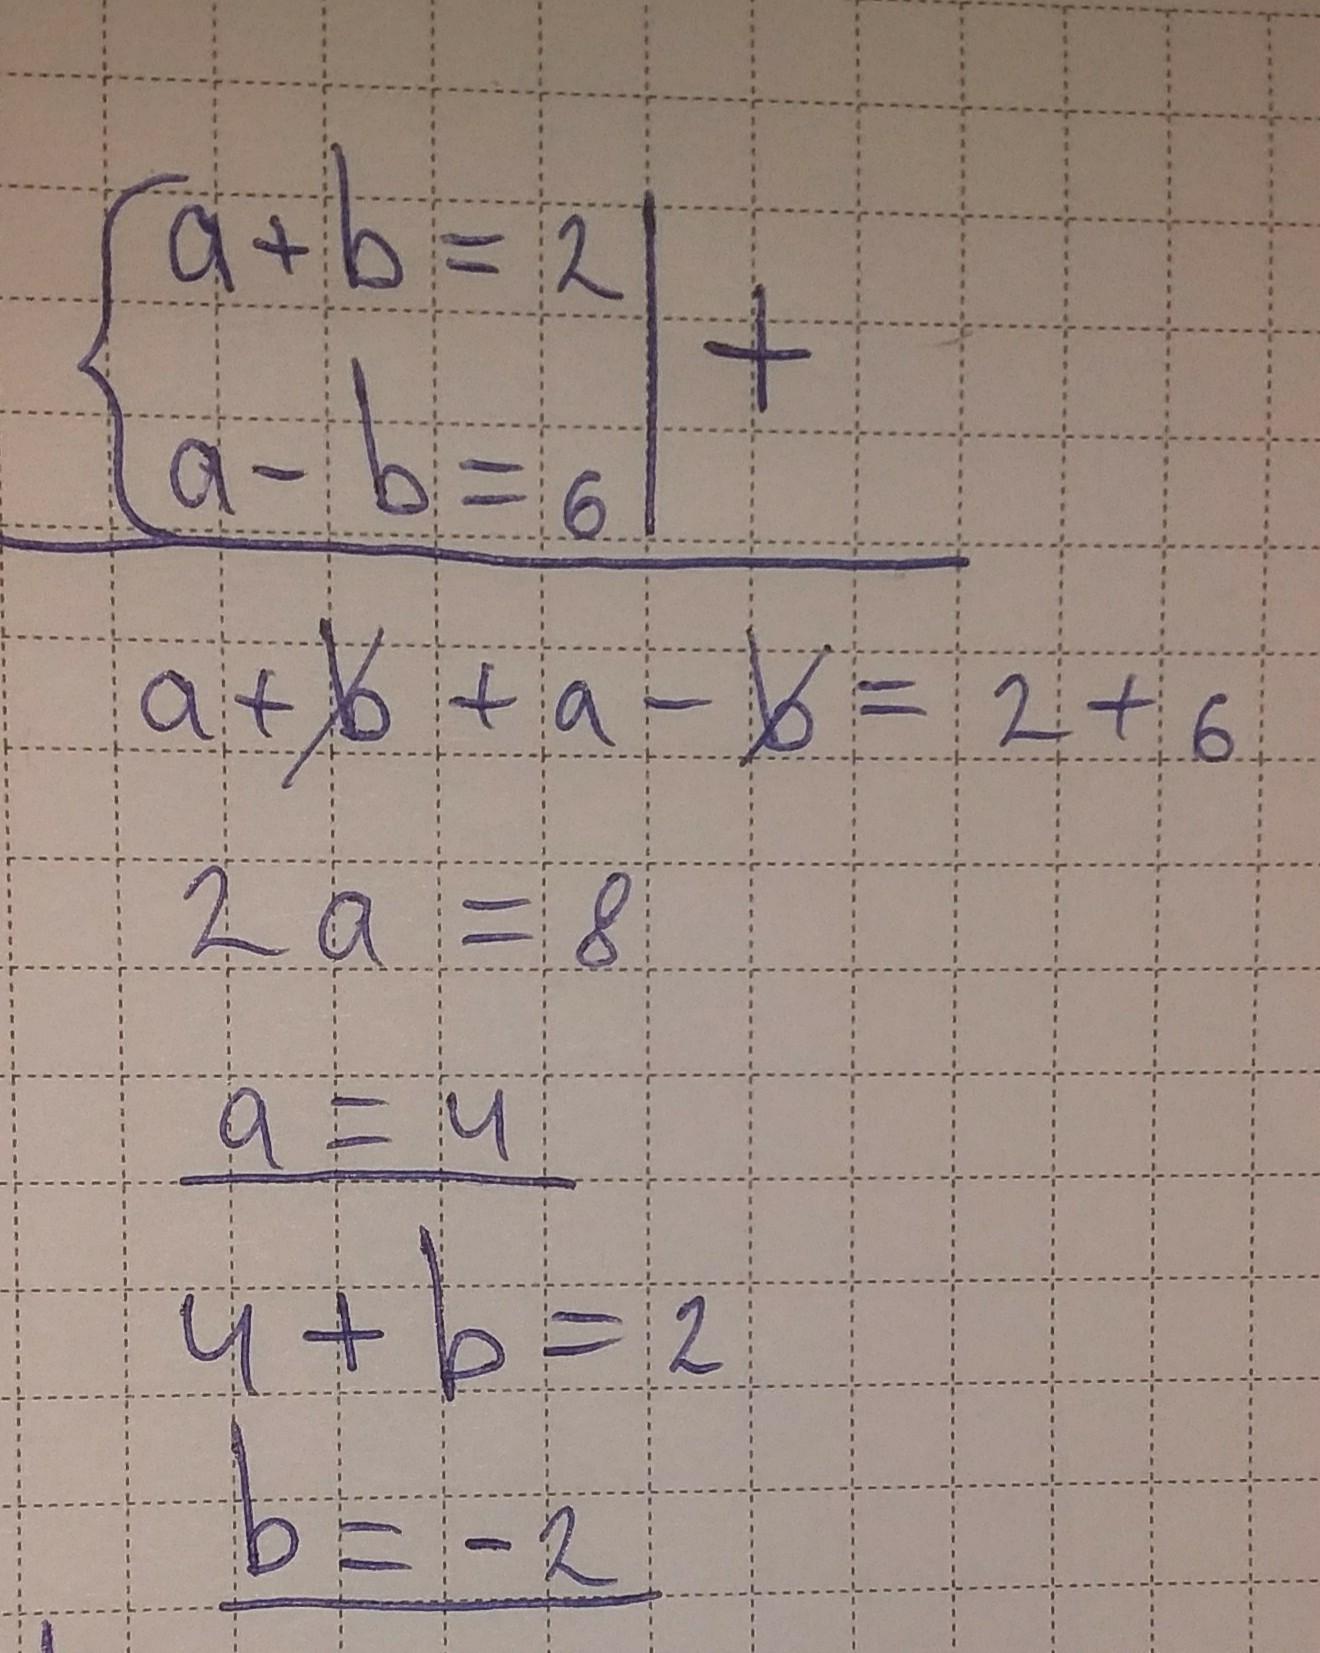 a + b = 2
a - b = 6 | +
a + b + a - b = 2 + 6
2a = 8
a = 4
4 + b = 2
b = -2